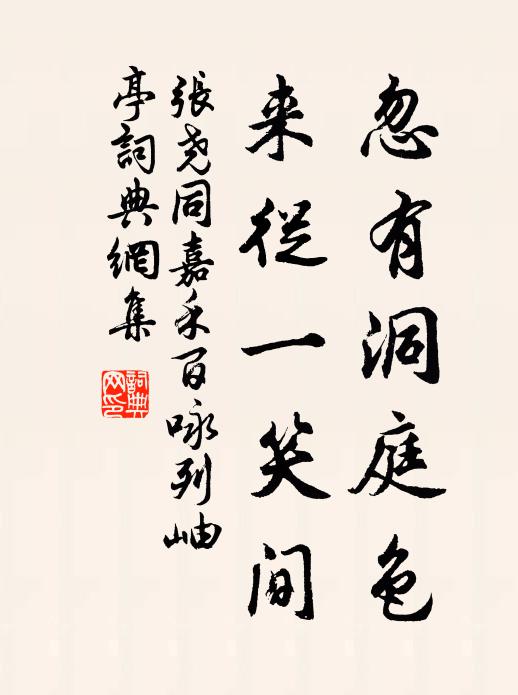 忽有洞庭色
来從一笑間
張堯同嘉禾百咏列岫
亭詞典網集
詞典
网印